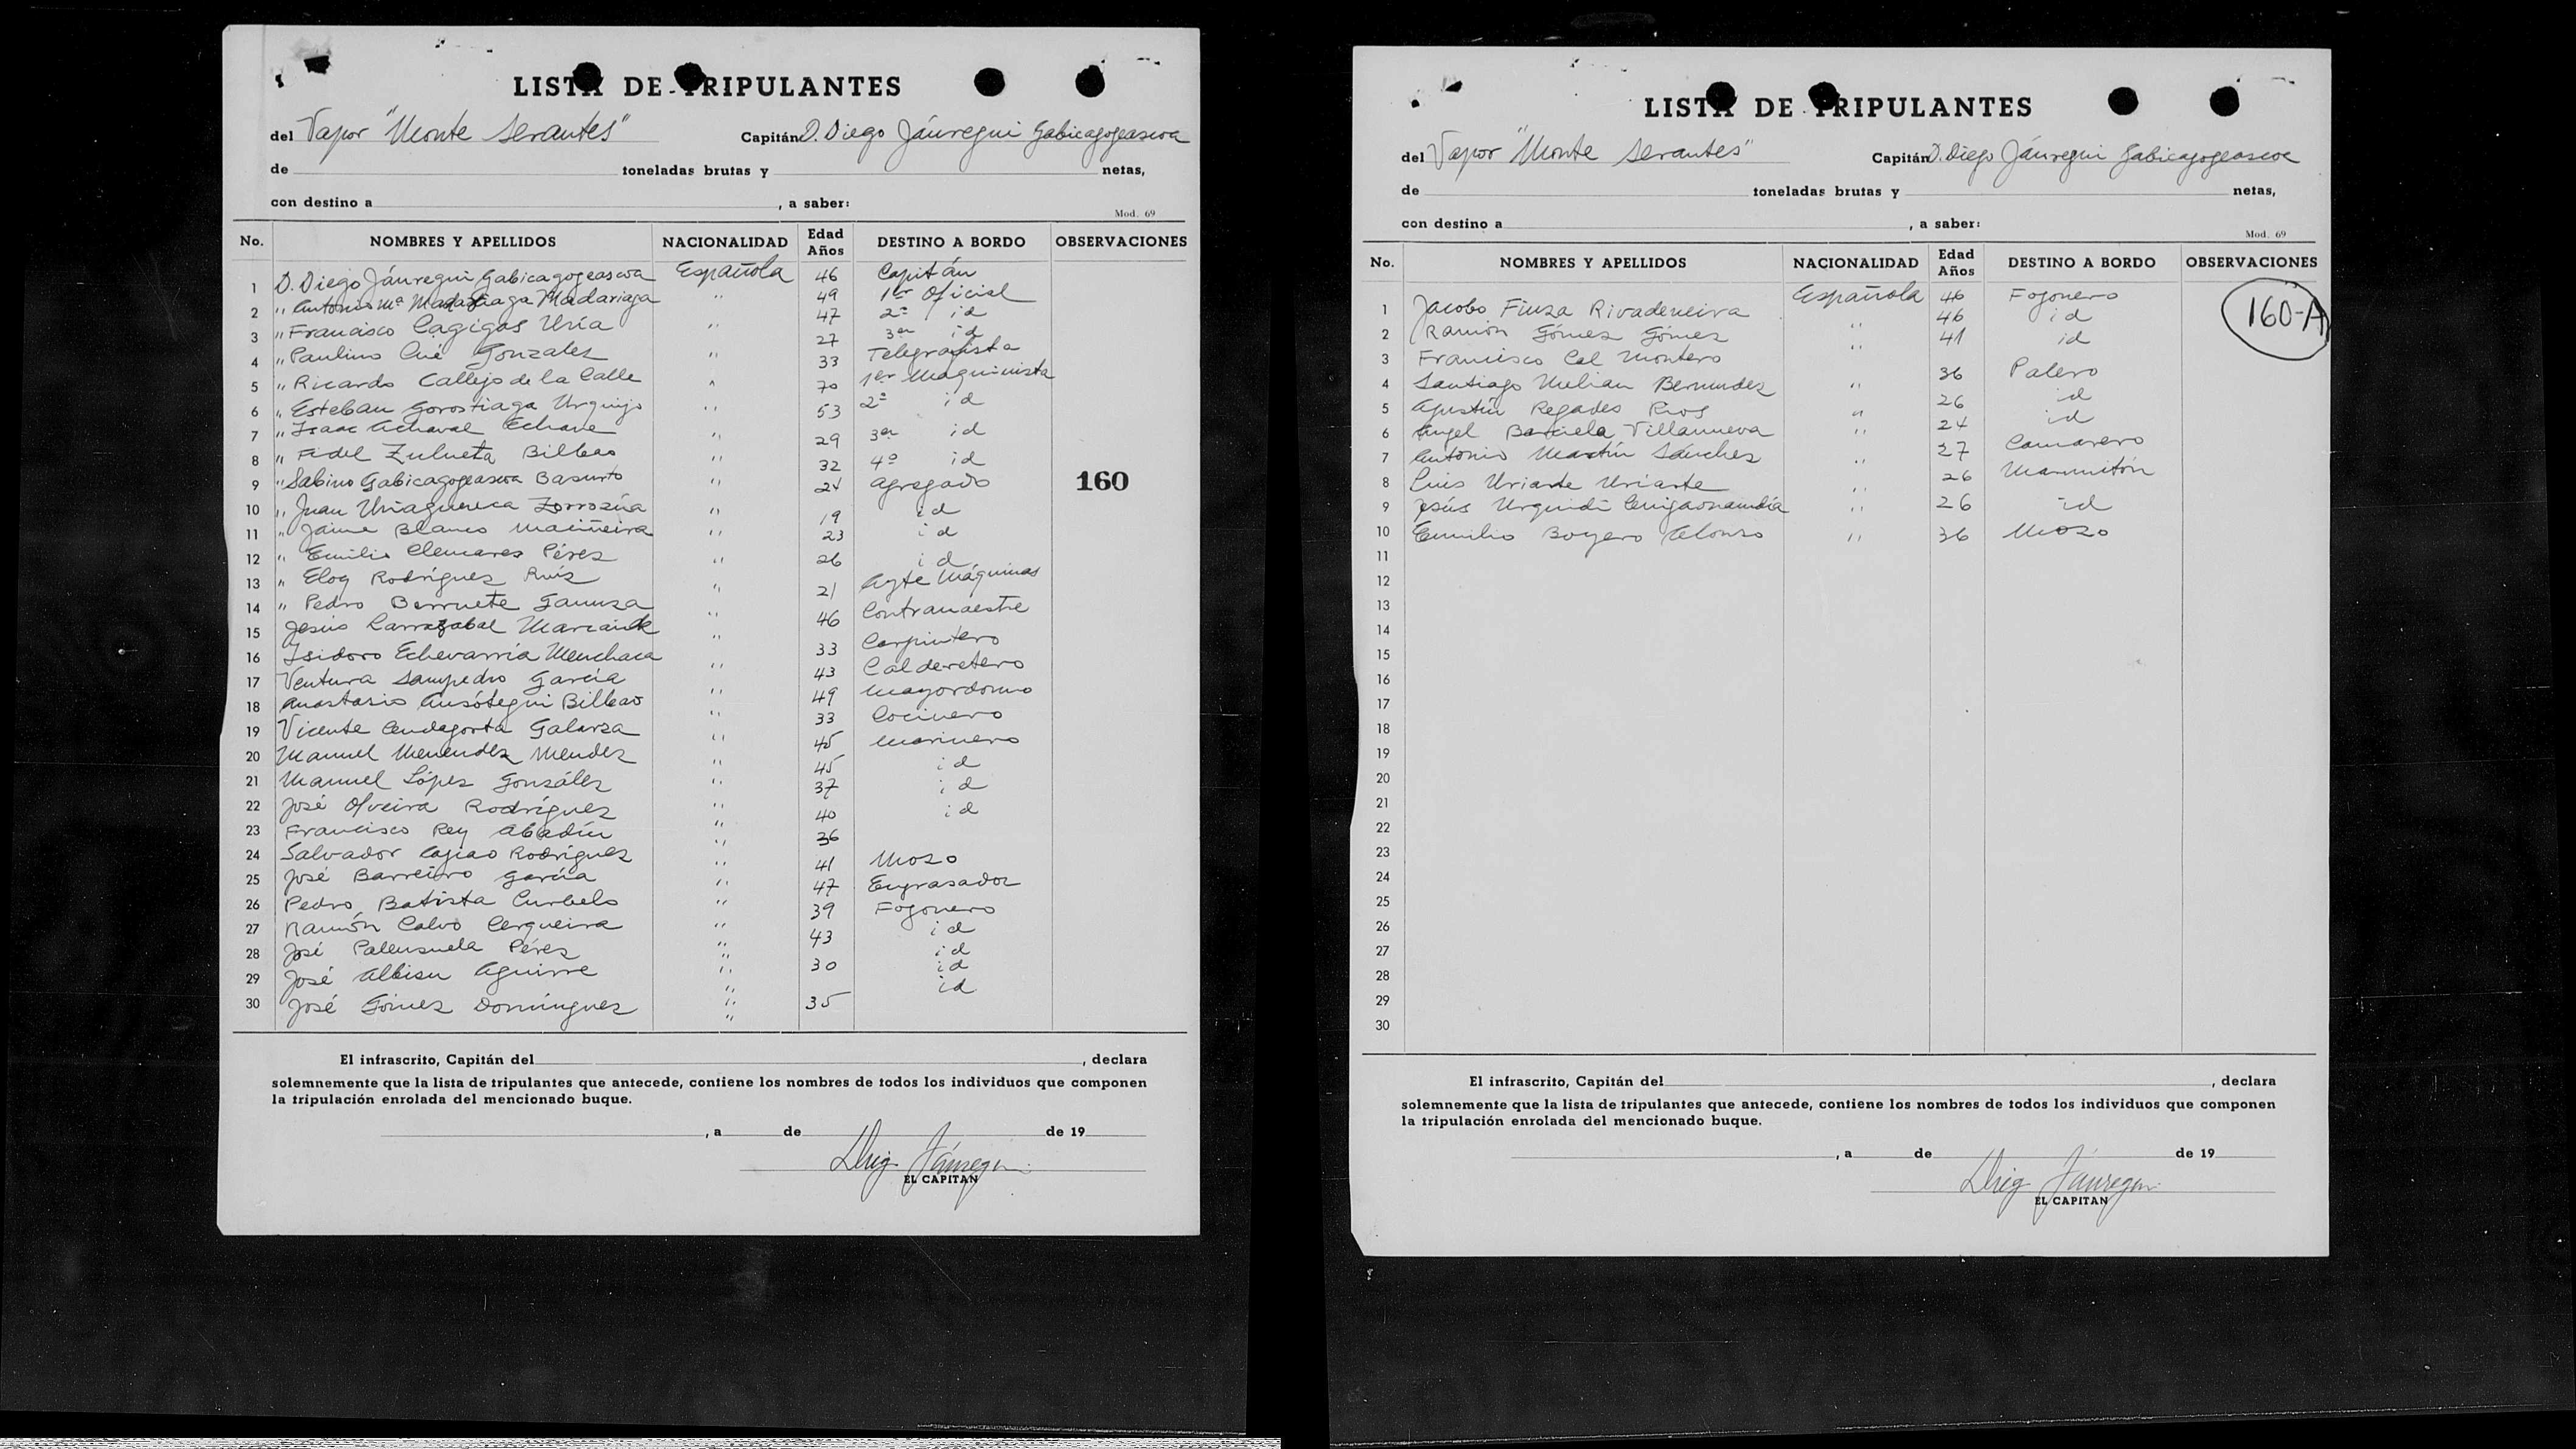 LISTA DE TRIPULANTES
del Vapor "Monte Serantes" Capitán D. Diego Jáuregui Gabicagogeascoa
de toneladas brutas y netas,
con destino a , a saber:
Mod. 69
No. NOMBRES Y APELLIDOS NACIONALIDAD Edad Años DESTINO A BORDO OBSERVACIONES
1 D. Diego Jáuregui Gabicagogeascoa Española 46 Capitán
2 " Antonio Mª Madariaga Madariaga " 49 1er Oficial
3 " Francisco Cagigas Uría " 47 2º id
4 " Paulino Cué Gonzalez " 27 3er id
5 " Ricardo Callejo de la Calle " 33 Telegrafista
6 " Esteban Gorostiaga Urquijo " 70 1er Maquinista
7 " Isaac Achaval Echave " 53 2º id
8 " Fidel Zulueta Bilbao " 29 3er id
9 " Sabino Gabicagogeascoa Basurto " 32 4º id
10 " Juan Uriaguereca Zorrozúa " 24 agregado 160
11 " Jaime Blanco Maciñeira " 19 id
12 " Emilio Clemares Pérez " 23 id
13 " Eloy Rodríguez Ruíz " 26 id
14 " Pedro Berruete Ganuza " 21 Ayte Máquinas
15 Jesús Larrazabal " 46 Contramaestre
16 Isidoro Echevarría Menchaca " 33 Carpintero
17 Ventura Sampedro García " 43 Calderetero
18 Anastasio Ansótegui Bilbao " 49 Mayordomo
19 Vicente Cendagorta Galarza " 33 Cocinero
20 Manuel Menendez Mendez " 45 Marinero
21 Manuel López Gonzáles " 45 id
22 José Olveira Rodríguez " 37 id
23 Francisco Rey Abadín " 40 id
24 Salvador Cajiao Rodríguez " 36
25 José Barreiro García " 41 Mozo
26 Pedro Batista Curbelo " 47 Engrasador
27 Ramón Calvo Cerqueira " 39 Fogonero
28 José Palenzuela Pérez " 43 id
29 José Albisu Aguirre " 30 id
id
30 José Gómez Domínguez " 35 id
El infrascrito, Capitán del , declara
solemnemente que la lista de tripulantes que antecede, contiene los nombres de todos los individuos que componen
la tripulación enrolada del mencionado buque.
, a de de 19
Jáuregui
EL CAPITAN
LISTA DE TRIPULANTES
del Vapor "Monte Serantes" Capitán D. Diego Jáuregui Gabicagogeascoa
de toneladas brutas y netas,
con destino a , a saber:
Mod. 69
No. NOMBRES Y APELLIDOS NACIONALIDAD Edad Años DESTINO A BORDO OBSERVACIONES
1 Jacobo Fiuza Rivadeneira Española 46 Fogonero 160-A
2 Ramón Gómez Gómez " 46 id
3 Francisco Cal Montero " 41 id
4 Santiago Melian Bermudez " 36 Palero
5 Agustín Regades Rios " 26 id
6 Angel Barciela Villanueva " 24 id
7 Antonio Martín Sánchez " 27 Camarero
8 Luis Uriarte Uriarte " 26 Marmitón
9 Jesús Urquidi " 26 id
10 Emilio Boyero Alonso " 36 Mozo
11
12
13
14
15
16
17
18
19
20
21
22
23
24
25
26
27
28
29
30
El infrascrito, Capitán del , declara
solemnemente que la lista de tripulantes que antecede, contiene los nombres de todos los individuos que componen
la tripulación enrolada del mencionado buque.
, a de de 19
Jáuregui
EL CAPITAN